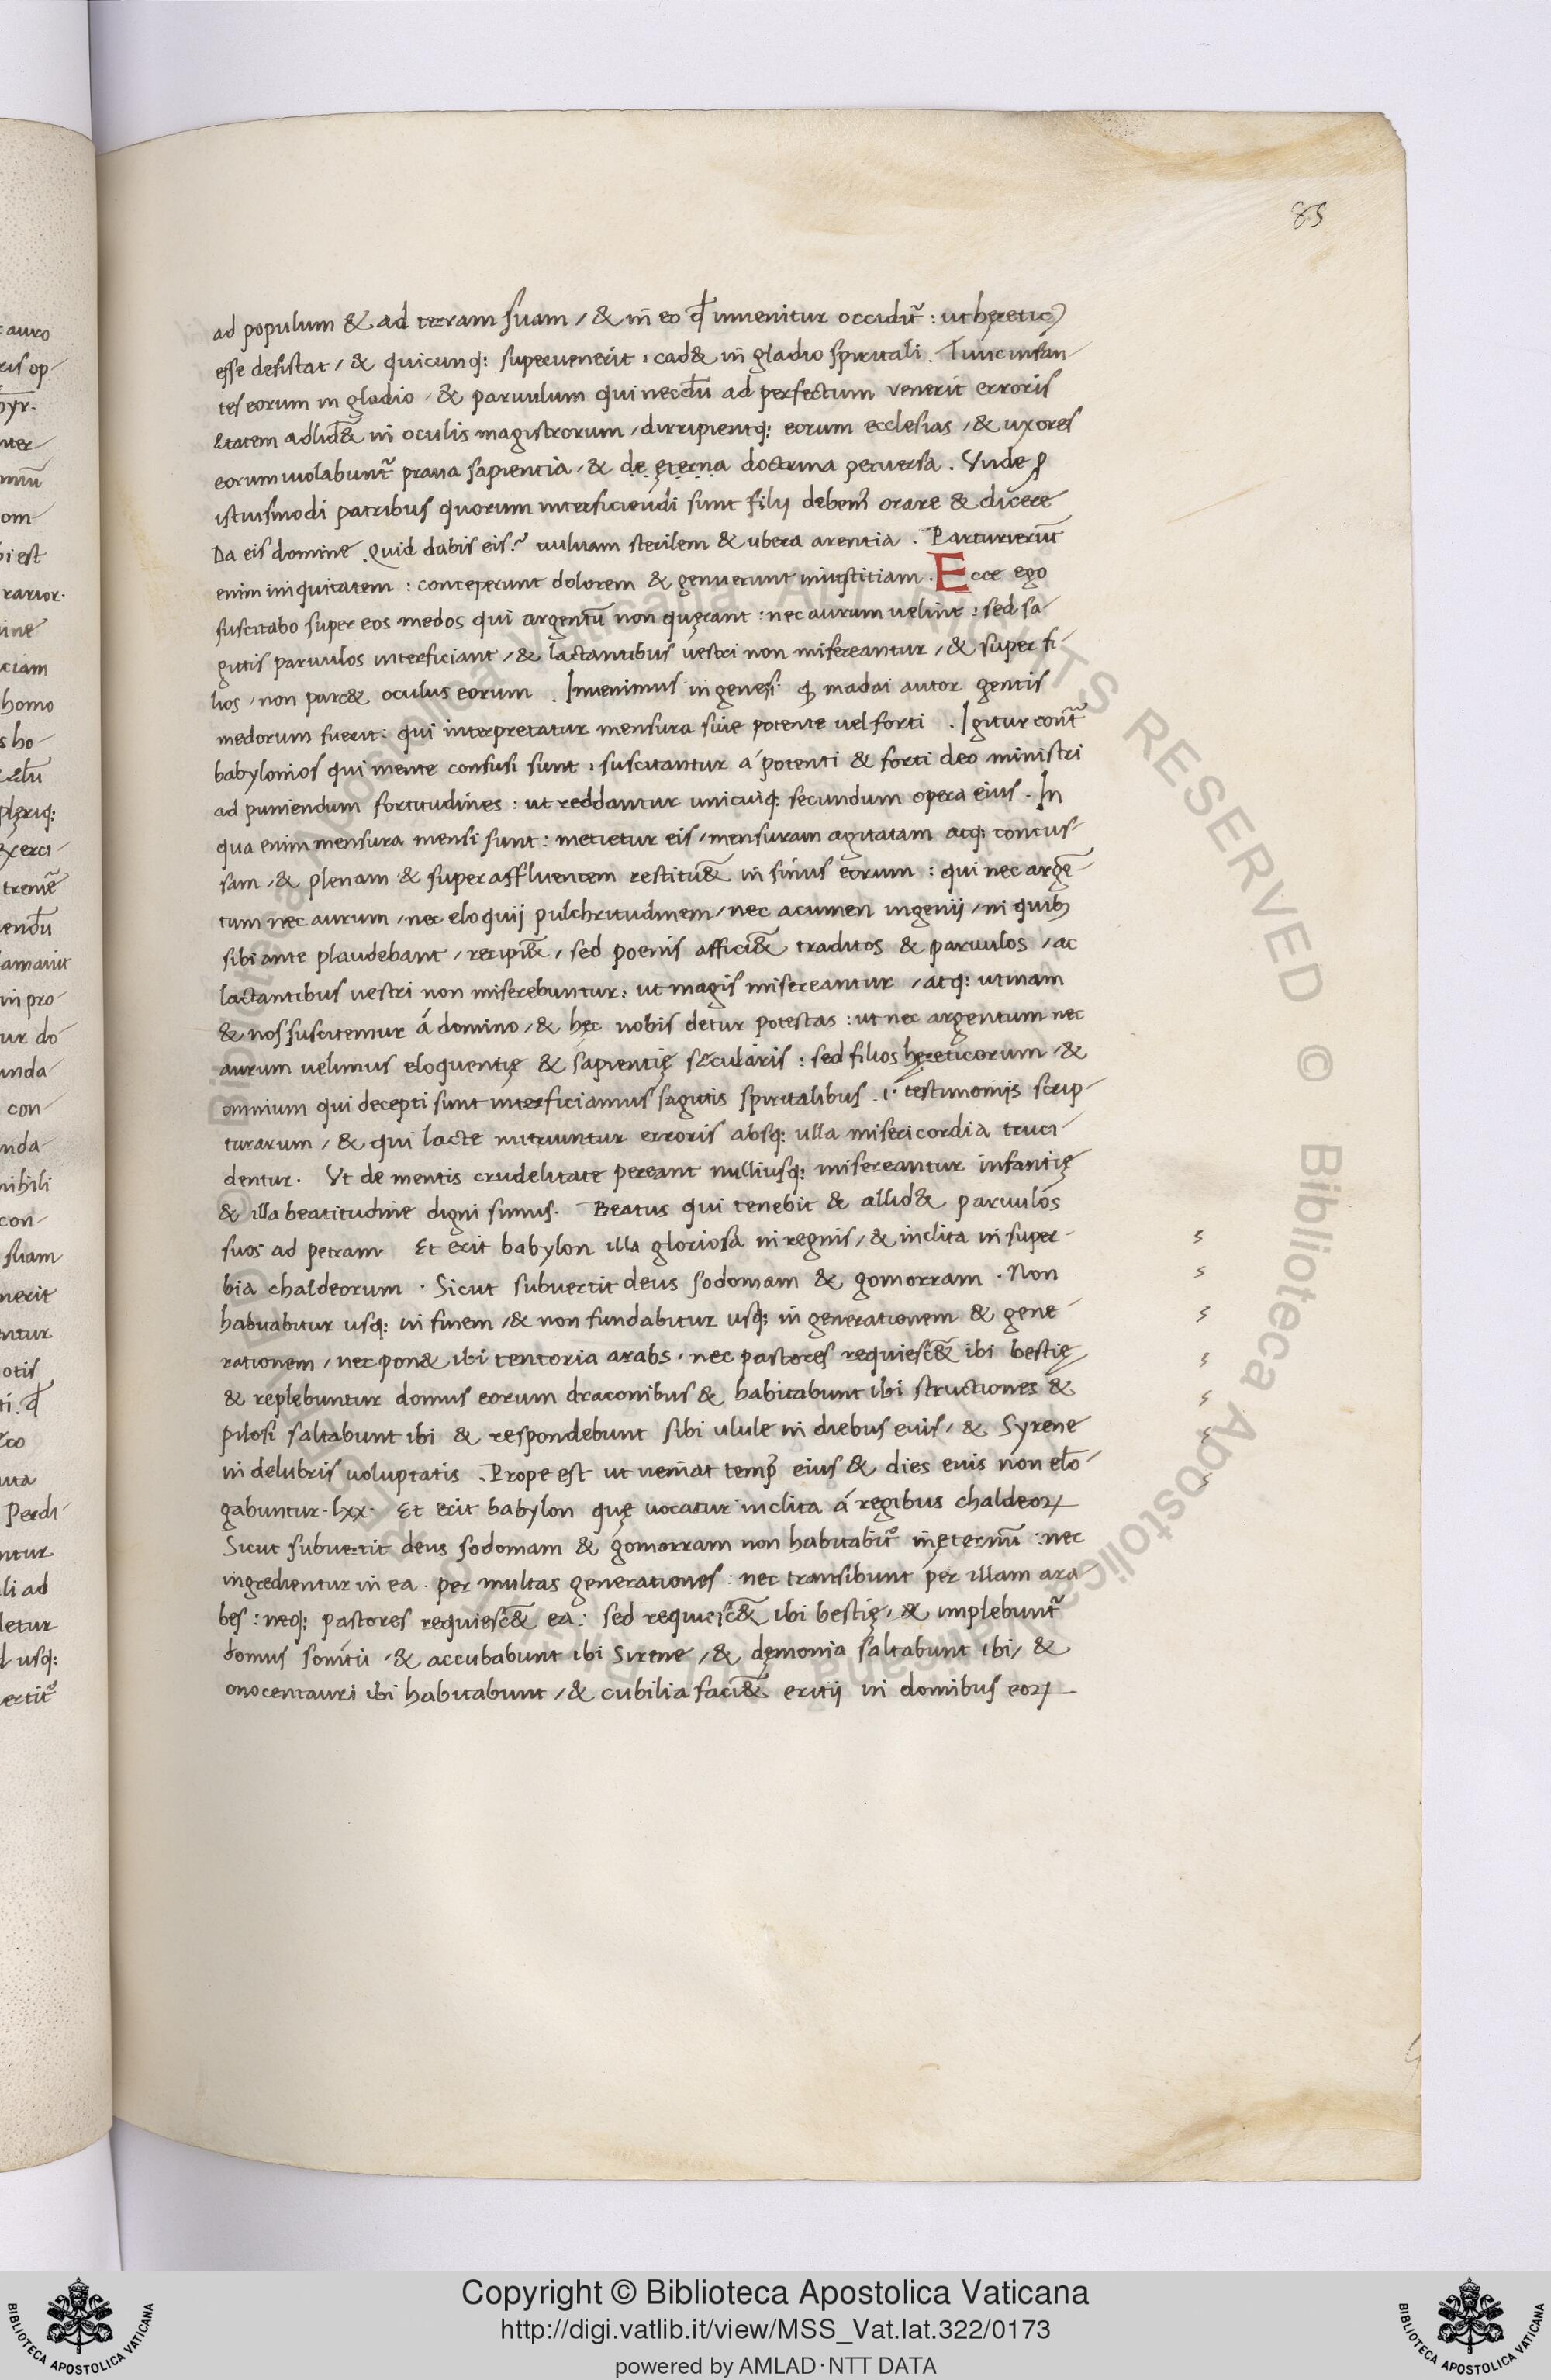 85
ad populum & ad terram suam / & in eo qđ inuenitur occidit᷑ : ut hęretic⁹
esse desistat / & quicunq: superuenerit : cad& in gladio spiritali . Tunc infan-
tes eorum in gladio / & paruulum qui necdū ad perfectum venerit erroris
ętatem adlid& in oculis magistrorum / dirripientq: eorum ecclesias / & uxores
eorum uiolabunt᷑ praua sapientia / & de ęterna doctrina peruersa . Vnde ꝓ
istiusmodi patribus quorum interficiendi sunt filij debem⁹ orare & dicere
Da eis domine . Quid dabis eis ? uuluam sterilem & ubera arentia . Parturierūt
enim iniquitatem : conceperunt dolorem & genuerunt iniustitiam . Ecce ego
suscitabo super eos medos qui argentū non quęrant : nec aurum velint : sed sa-
gittis paruulos interficiant / & lactantibus vestri non misereantur / & super fi-
lios / non parc& oculus eorum . Inuenimus in genesi ꝙ madai autor gentis
medorum fuerit : qui interpretatur mensura siue potente vel forti . Igitur cont᷑
babylonios qui mente confusi sunt : suscitantur á potenti & forti deo ministri
ad puniendum fortitudines : ut reddantur unicuiq: secundum opera eius . In
qua enim mensura mensi sunt : metietur eis / mensuram agitatam atq: concus-
sam / & plenam & superaffluentem restitu&̄ in sinus eorum : qui nec argē-
tum nec aurum / nec eloquij pulchritudinem / nec acumen ingenij / in quib⁹
sibi ante plaudebant / recipi&̄ / sed poenis affici&̄ traditos & paruulos / ac
lactantibus vestri non miserebuntur : ut magis misereantur / atq: utinam
& nos suscitemur á domino / & hęc nobis detur potestas : ut nec argentum nec
aurum uelimus eloquentię & sapientię sęcularis : sed filios hęreticorum / &
omnium qui decepti sunt interficiamus sagittis spiritalibus . i . testimonijs scrip-
turarum / & qui lacte nutriuntur erroris absq: ulla misericordia truci-
dentur . Vt de mentis crudelitate pereant nulliusq: misereantur infantię
& illa beatitudine digni simus . Beatus qui tenebit & allid& paruulos
suos ad petram . Et erit babylon illa gloriosa in regnis / & inclita in super-
bia chaldeorum . Sicut subuertit deus sodomam & gomorram . Non
habitabitur usq: in finem / & non fundabitur usq: in generationem & gene-
rationem / nec pon& ibi tentoria arabs / nec pastores requiesc&̄ ibi bestię
& replebuntur domus eorum draconibus & habitabunt ibi structiones &
pilosi saltabunt ibi & respondebunt sibi ulule in diebus euis / & Syrene
in delubris uoluptatis . Prope est ut veniat temp⁹ eius & dies euis non elō-
gabuntur . lxx . Et erit babylon quę uocatur inclita á regibus chaldeoꝝ
Sicut subuertit deus sodomam & gomorram non habitabit᷑ in ęternū : nec
ingredientur in ea . per multas generationes : nec transibunt per illam ara-
bes : neq: pastores requiesc&̄ ea : sed requiesc&̄ ibi bestię / & implebunt᷑
domus sonitu / & accubabunt ibi Sirene / & dęmonia saltabunt ibi / &
onocentauri ibi habitabunt / & cubilia faci&̄ eritij in domibus eoꝝ
Copyright © Biblioteca Apostolica Vaticana
http://digi.vatlib.it/view/MSS_Vat.lat.322/0173
powered by AMLAD·NTT DATA